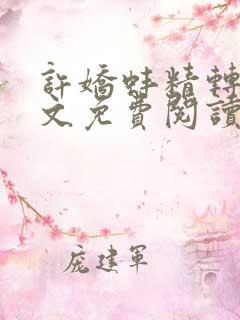 許嬌蚌精轉
文免費閱讀
庞建军